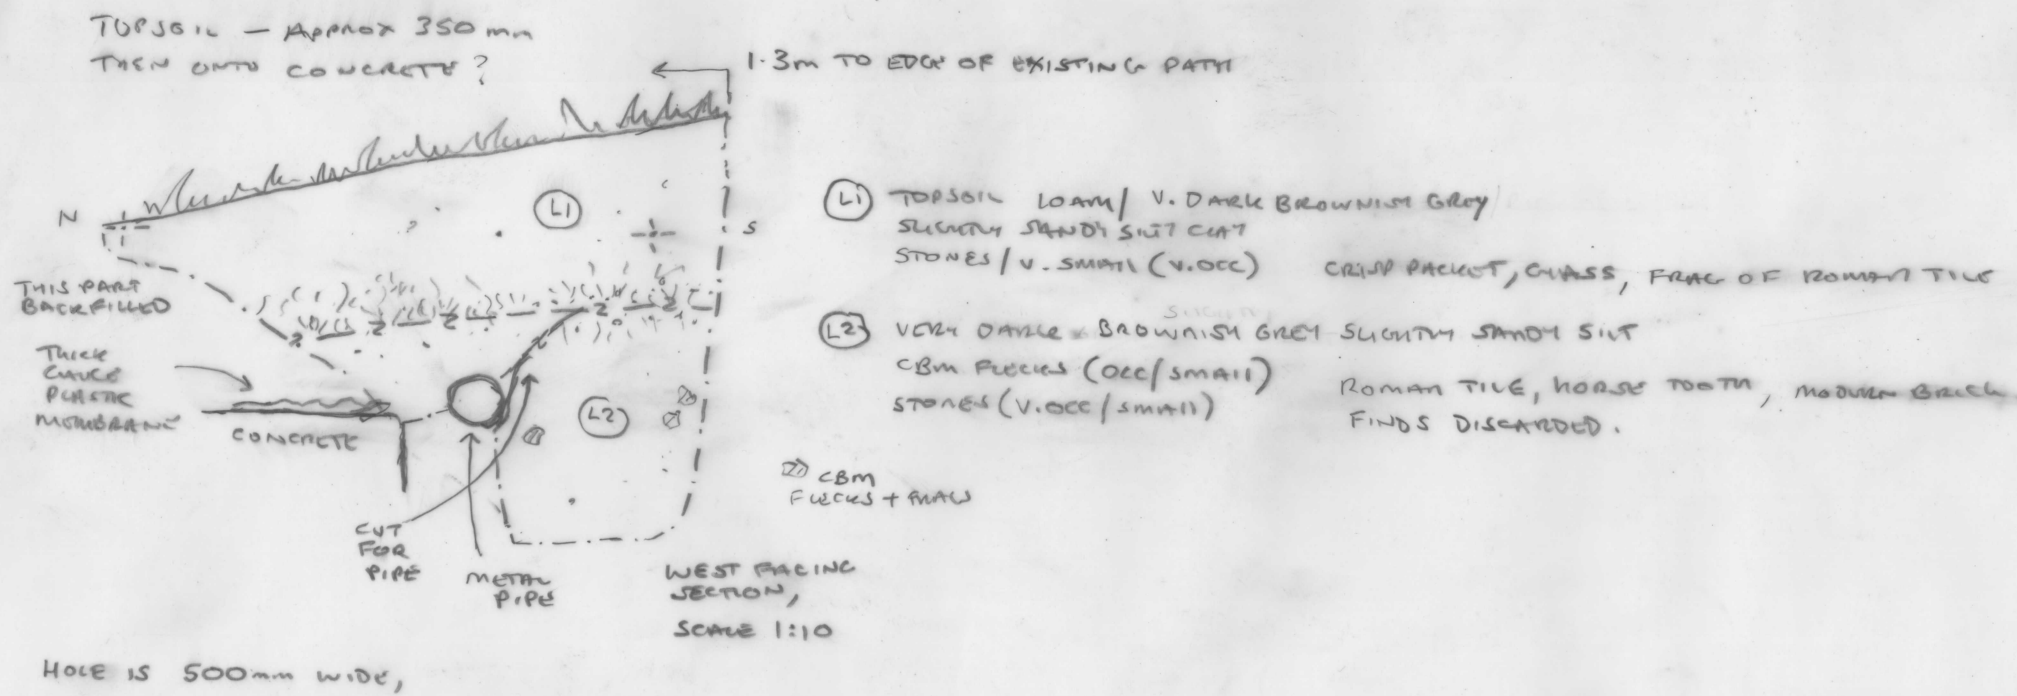 TOPSOIL — APPROX 350mm
THEN ONTO CONCRETE?
1.3m TO EDGE OF EXISTING PATH
N
S
L1
THIS PART
BACKFILLED
? ? ? ? ?
THICK
GAUGE
PLASTIC
MEMBRANE
CONCRETE
L2
CUT
FOR
PIPE
METAL
PIPE
CBM
FLECKS + FRAGS
WEST FACING
SECTION,
SCALE 1:10
HOLE IS 500mm WIDE,
L1 TOPSOIL LOAM / V. DARK BROWNISH GREY
SLIGHTLY SANDY SILT CLAY
STONES / V. SMALL (V.OCC) CRISP PACKET, GLASS, FRAG OF ROMAN TILE
L2 VERY DARK BROWNISH GREY SLIGHTLY SANDY SILT
CBM FLECKS (OCC/SMALL) ROMAN TILE, HORSE TOOTH, MODERN BRICK
STONES (V.OCC/SMALL) FINDS DISCARDED.